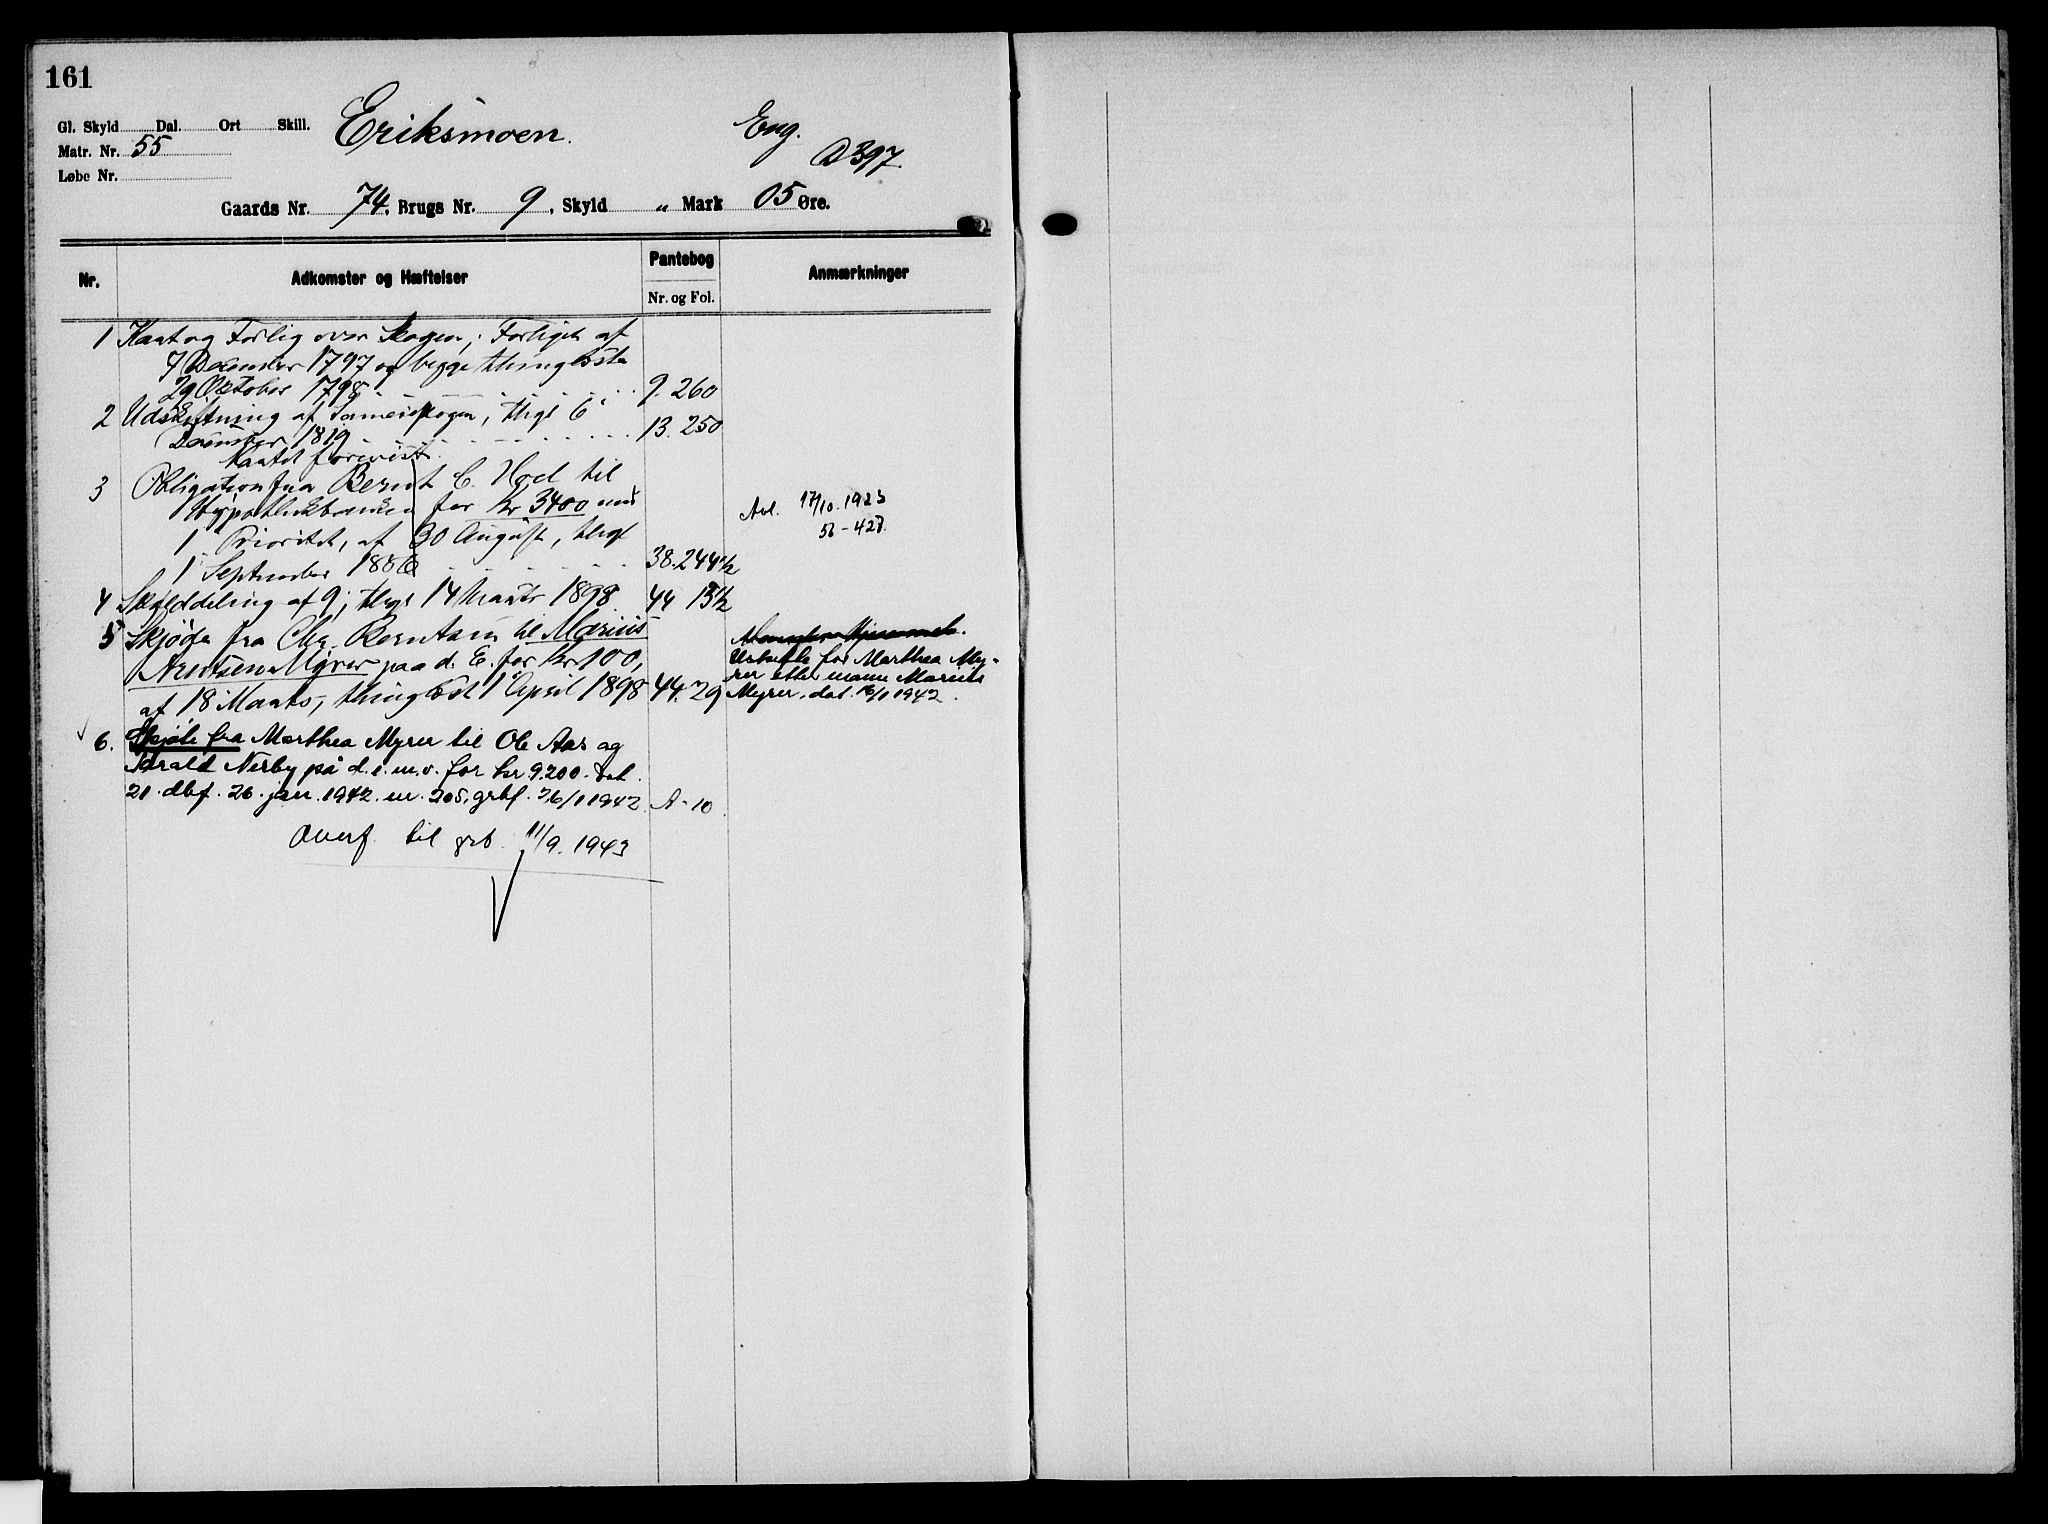 161
Gl. Skyld Dal. Ort Skill.
Eriksmoen.
Eng.
Matr. Nr. 55
D 397
Løbe Nr.
Gaards Nr. 74, Brugs Nr. 9, Skyld " Mark 05 Øre.
Nr.
Adkomster og Hæftelser
Pantebog
Nr. og Fol.
Anmærkninger
1 Kaart og Forlig over Skogen; Forliget af
7 December 1797 og begge thinglæste
29 Oktober 1798 9. 260
2 Udskiftning af skogen, thgl 6
December 1819 13. 250
Kaartet forevist.
3 Obligation fra Bernt C. Hod til
Hypothekbanken for Kr 3400 mod
1 Prioritet, af 30 August, thgl
1 September 1886 38. 244 1/2
Avl. 17/10. 1923
56-428.
4 Skylddeling af 9; thgl 14 Marts 1898 44 13 1/2
5 Skjøde fra Chr. Berntsen til Marius
Arentsen Myrer paa d. E. for Kr 100,
af 18 Marts, thinglæst 1 April 1898 44. 29
Uskifte for Marthea My-
rer etter mann Marius
Myrer, dat. 16/1 1942.
6. Skjøte fra Marthea Myrer til Ole Aas og
Harald Nerby på d. e. m. v. for kr 9.200. dat.
21. dbf. 26. jan. 1942. nr. 205, grbf. 26/1 1942 A-10
Overf. til grb. 11/9. 1943